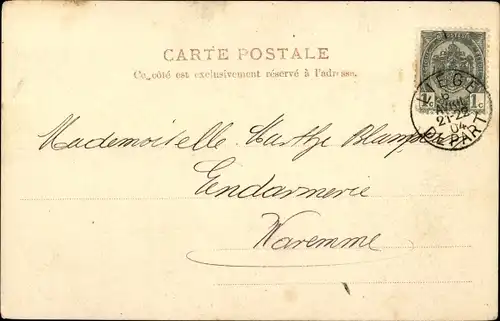 CARTE POSTALE
Ce côté est exclusivement réservé à l'adresse.
1c 1c
LIÉGE
21-22
04
DEPART
Mademoiselle Marthe
Gendarmerie
Waremme